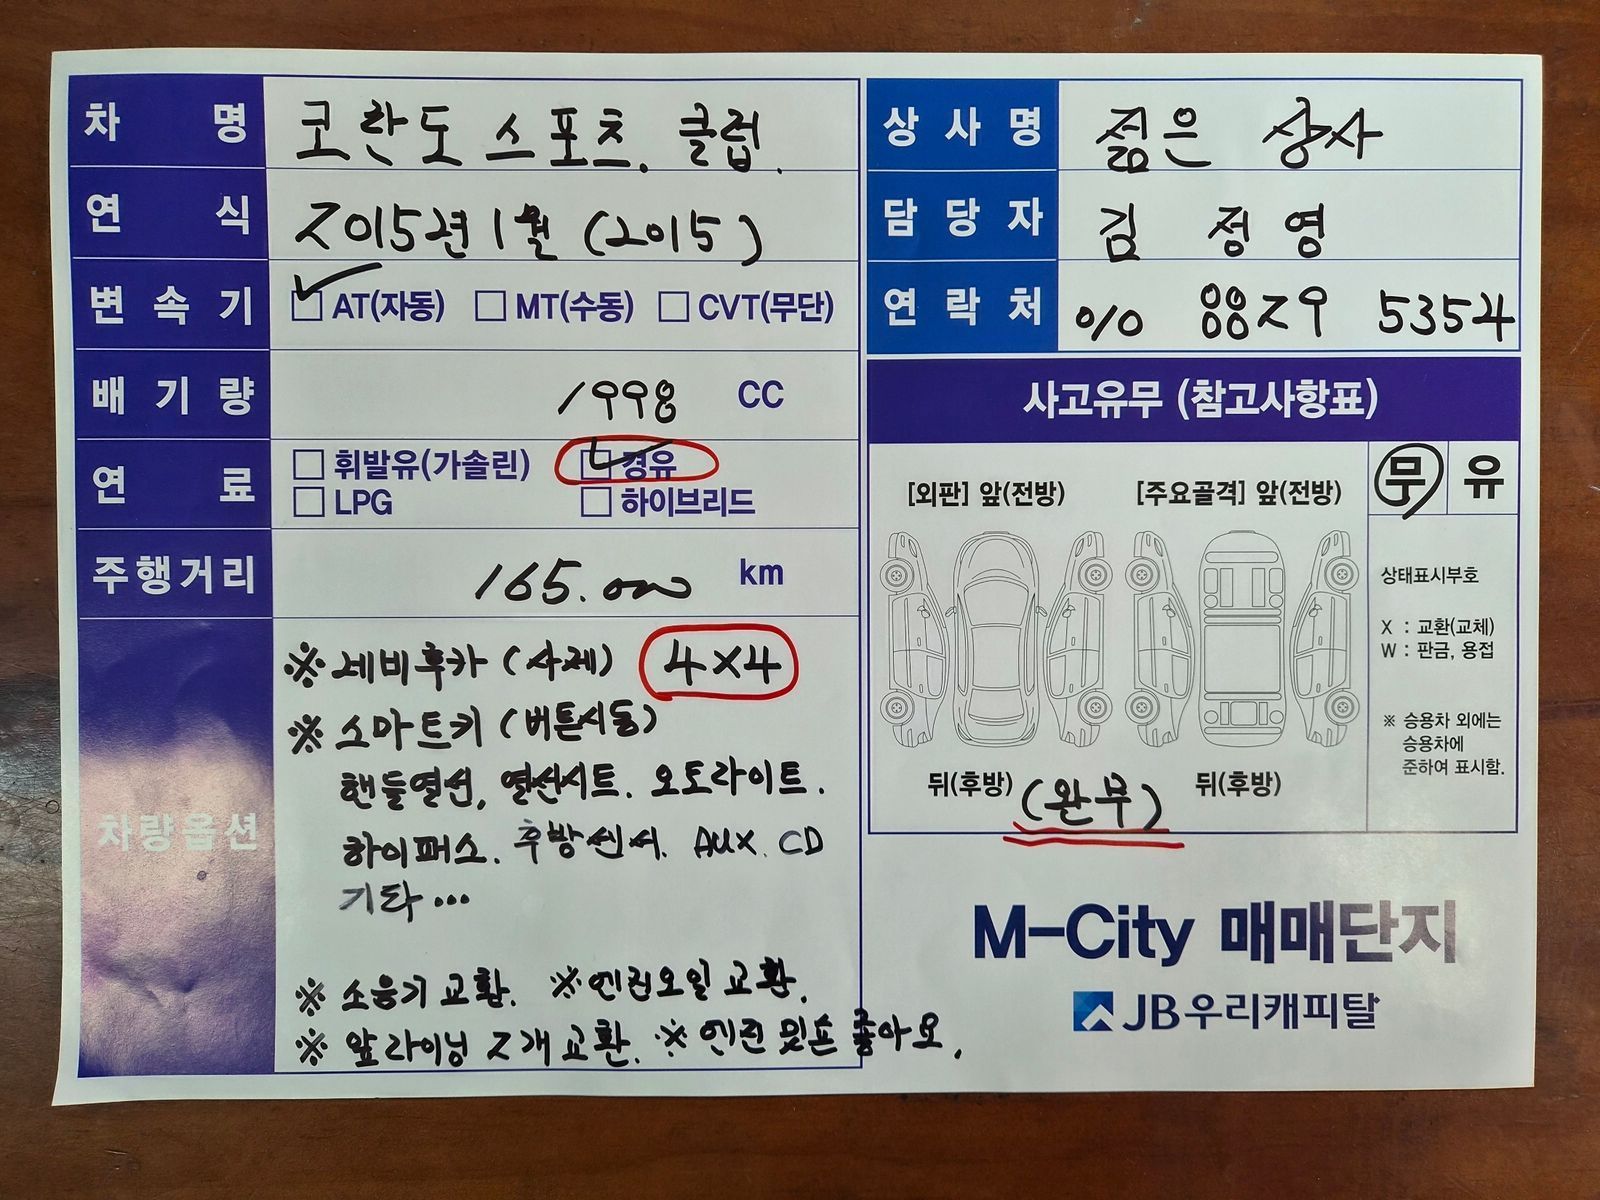 차 명 코란도 스포츠. 클럽.
연 식 2015년 1월 (2015)
변 속 기 AT(자동) MT(수동) CVT(무단)
배 기 량 1998 CC
연 료 휘발유(가솔린) 경유
LPG 하이브리드
주행거리 165.000 km
차량옵션
※ 네비후카 (사제) 4X4
※ 스마트키 (버튼시동)
핸들열선, 열선시트. 오토라이트.
하이패스. 후방센서. AUX. CD
기타...
※ 소음기 교환. ※ 엔진오일 교환.
※ 앞라이닝 2개 교환. ※ 엔진 밋숀 좋아요.
상 사 명 젊은 상사
담 당 자 김 정 영
연 락 처 010 8829 5354
사고유무 (참고사항표)
[외판] 앞(전방) [주요골격] 앞(전방) 무 유
상태표시부호
X : 교환(교체)
W : 판금, 용접
※ 승용차 외에는
승용차에
준하여 표시함.
뒤(후방) (완무) 뒤(후방)
M-City 매매단지
JB우리캐피탈